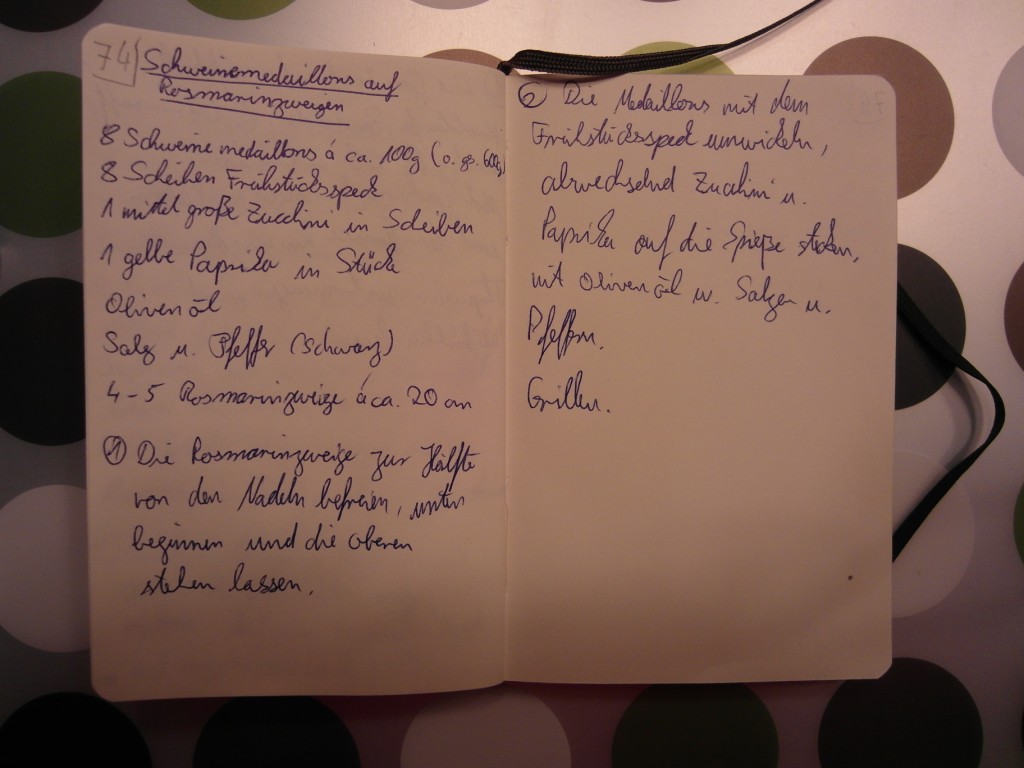 74
Schweinemedaillons auf
Rosmarinzweigen
8 Schweinemedaillons á ca. 100g (o. gs. 600g)
8 Scheiben Frühstücksspeck
1 mittel große Zucchini in Scheiben
1 gelbe Paprika in Stücke
Olivenöl
Salz u. Pfeffer (schwarz)
4-5 Rosmarinzweige á ca. 20 cm
① Die Rosmarinzweige zur Hälfte
von den Nadeln befreien, unten
beginnen und die oberen
stehen lassen.
② Die Medaillons mit dem
Frühstücksspeck umwickeln,
abwechselnd Zucchini u.
Paprika auf die Spieße stecken,
mit Olivenöl u. Salzen u.
Pfeffern.
Grillen.